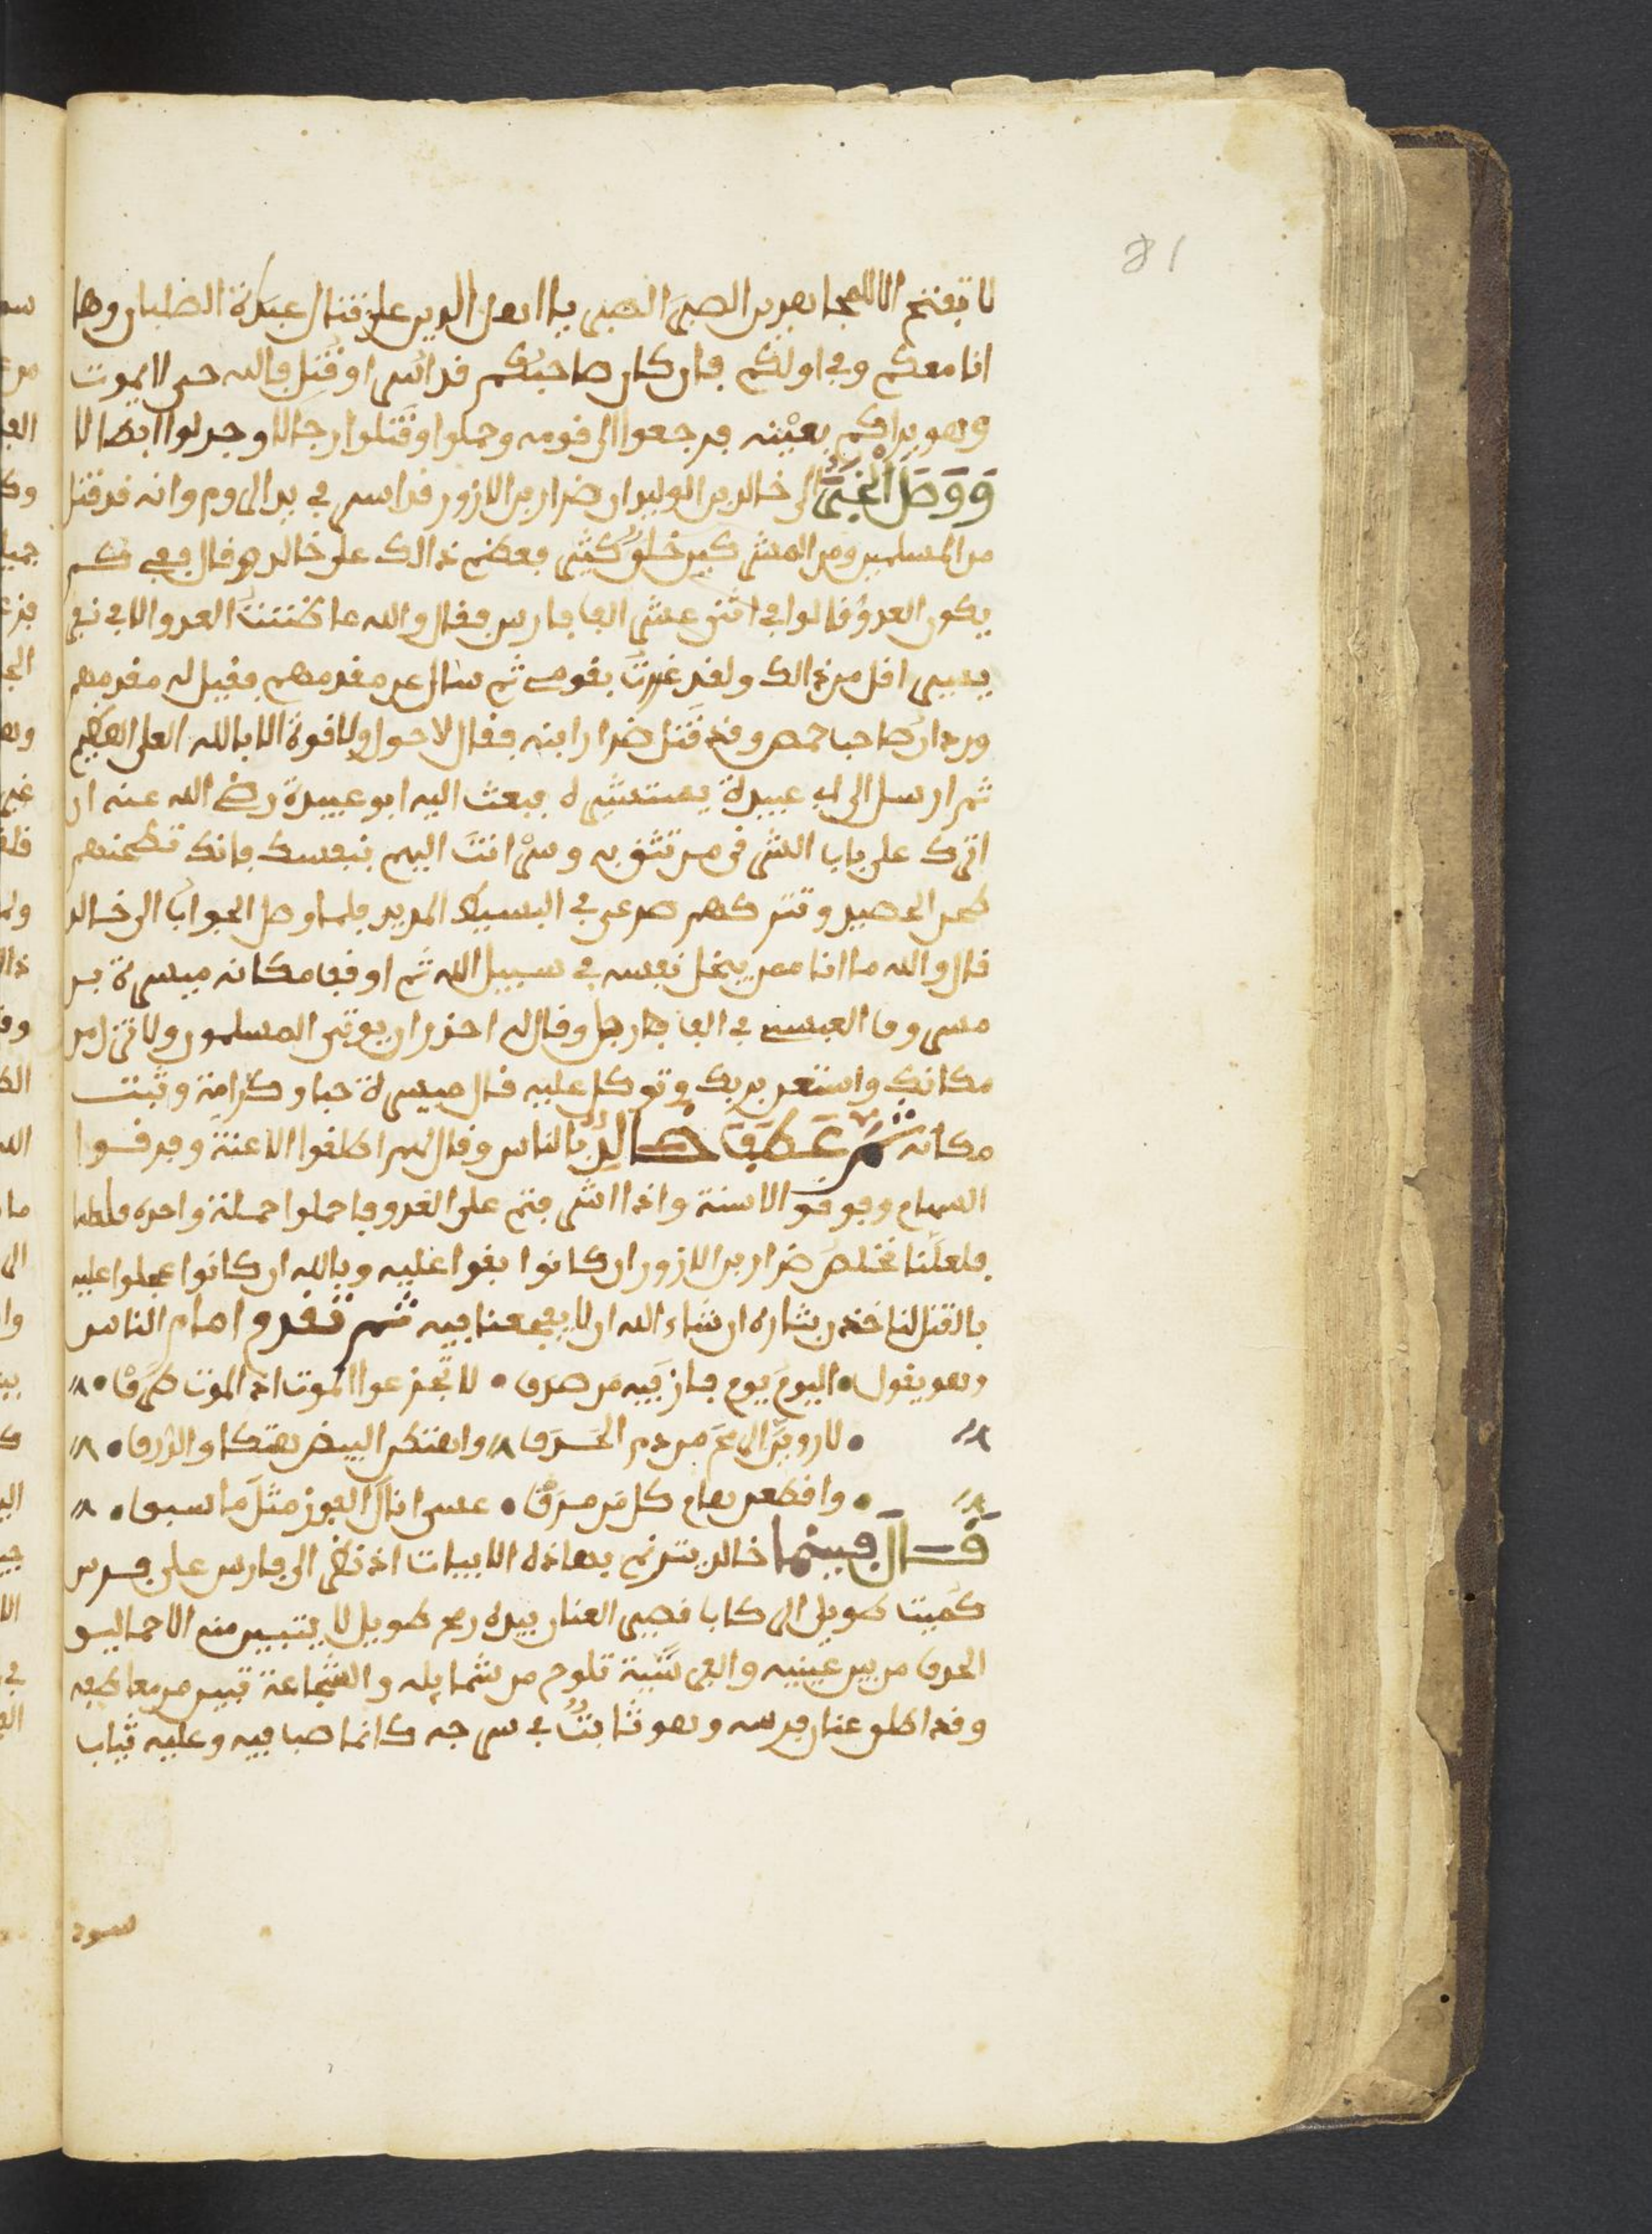 81
لا تفتح الا للمجاهدين الصبر الصبر يا اهل الدين على قتال عبدة الصلبان وها
انا معكم وفي اولكم فان كان صاحبكم قد اسر او قتل فالله حي لا يموت
وهو يراكم بعينه فرجعوا الى قومه وحملوا وقتلوا رجالا وجدلوا ابطالا
ووصل الخبر الى خالد بن الوليد ان ضرار بن الازور قد اسر في يد الروم وانه قد قتل
من المسلمين ومن المشركين خلق كثير فعظم ذالك على خالد وقال في كم
يكون العدو قالوا في اثنى عشر الف فارس فقال والله ما ظننت العدو الا في نفر
يسير اقل من ذالك ولقد غررت بقومي ثم سال عن مقدمهم فقيل له مقدمهم
وردان صاحب حمص وقد قتل ضرار ابنه فقال لا حول ولا قوة الا بالله العلي العظيم
ثم ارسل الى ابي عبيدة يستشيره فبعث اليه ابو عبيدة رضي الله عنه ان
اترك على باب الشرقي من تثق به وسر انت اليهم بنفسك فانك تطحنهم
طحن الحصيد وتتركهم صرعى في البسيط المديد فلما وصل الجواب الى خالد
قال والله ما انا ممن يبخل نفسه في سبيل الله ثم اوقف مكانه ميسرة بن
مسروق العبسي في الف فارس وقال له احذر ان يوتى المسلمون ولا تزل من
مكانك واستعن بربك وتوكل عليه قال ميسرة حبا وكرامة وثبت
مكانه ثم عطف خالد بالناس وقال لهم اطلقوا الاعنة وفرقوا
السهام وقوموا الاسنة واذا اشرفتم على العدو فاحملوا حملة واحدة
فلعلنا نخلص ضرار بن الازور ان كانوا بقوا عليه وبالله ان كانوا عجلوا عليه
بالقتل لناخذن بثاره ان شاء الله ان لا يفجعنا فيه ثم تقدم امام الناس
وهو يقول • اليوم يوم فاز فيه من صدق • لا تجزعوا الموت اذ الموت طرق •
• لاروين الرمح من دم الحدق واهتكن البيض هتكا والدرق •
• واقطعن هام كل من مرق • عسى انال الفوز مثل ما سبق •
قال فبينما خالد يترنم بهاذه الابيات اذ نظر الى فارس على فرس
كميت طويل الركاب قصير العنان بيده رمح طويل لا يتبين منه الا حماليق
الحدق من بين عينيه والفروسية تلوح من شمايله والشجاعة تبين من معاطفه
وقد اطلق عنان فرسه وهو ثابت في سرجه كانما صب فيه وعليه ثياب
سود